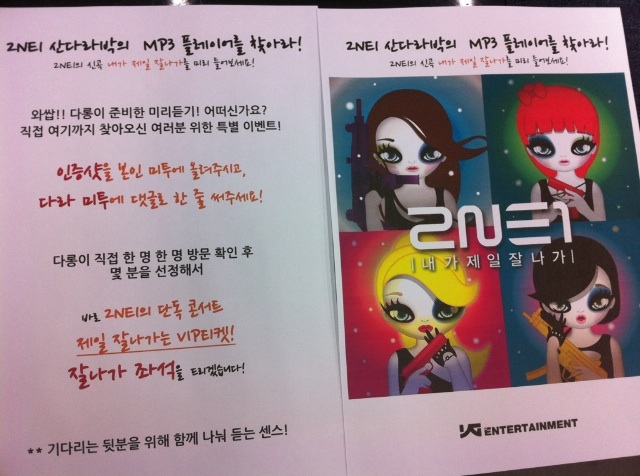 2NE1 산다라박의 MP3 플레이어를 찾아라!
2NE1의 신곡 내가 제일 잘나가를 미리 들어보세요!
와쌉!! 다롱이 준비한 미리듣기! 어떠신가요?
직접 여기까지 찾아오신 여러분 위한 특별 이벤트!
인증샷을 본인 미투에 올려주시고,
다라 미투에 댓글로 한 줄 써주세요!
다롱이 직접 한 명 한 명 방문 확인 후
몇 분을 선정해서
바로 2NE1의 단독 콘서트
제일 잘나가는 VIP티켓!
잘나가 좌석을 드리겠습니다!
** 기다리는 뒷분을 위해 함께 나눠 듣는 센스!
2NE1 산다라박의 MP3 플레이어를 찾아라!
2NE1의 신곡 내가 제일 잘나가를 미리 들어보세요!
2NE1
|내가제일잘나가|
YG ENTERTAINMENT